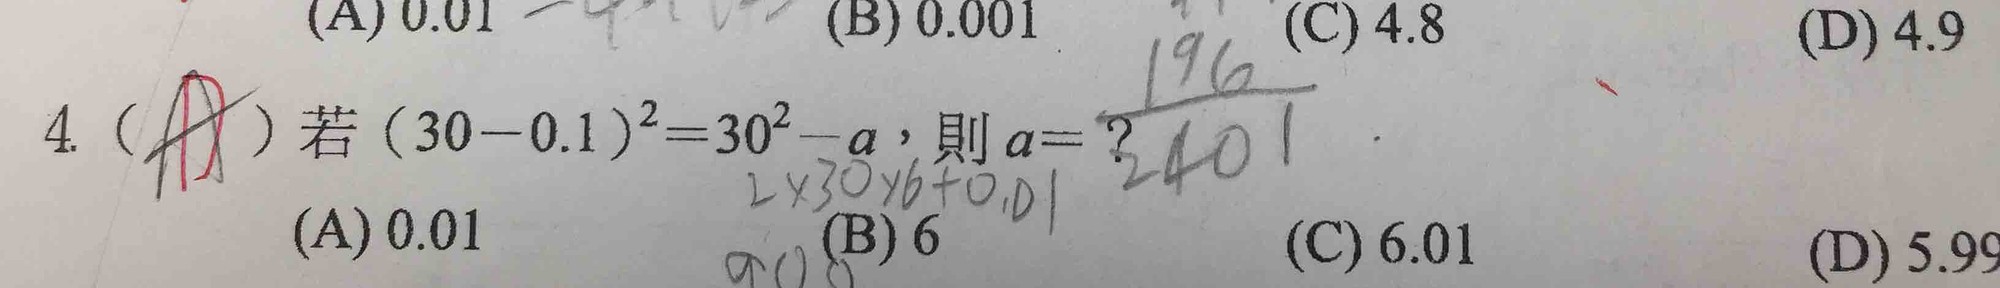 (A) 0.01 (B) 0.001 (C) 4.8 (D) 4.9
196
4. ( A ) 若 (30－0.1)²＝30²－a，則 a＝？
2401
2×30×6+0.01
(A) 0.01 (B) 6 (C) 6.01 (D) 5.99
900